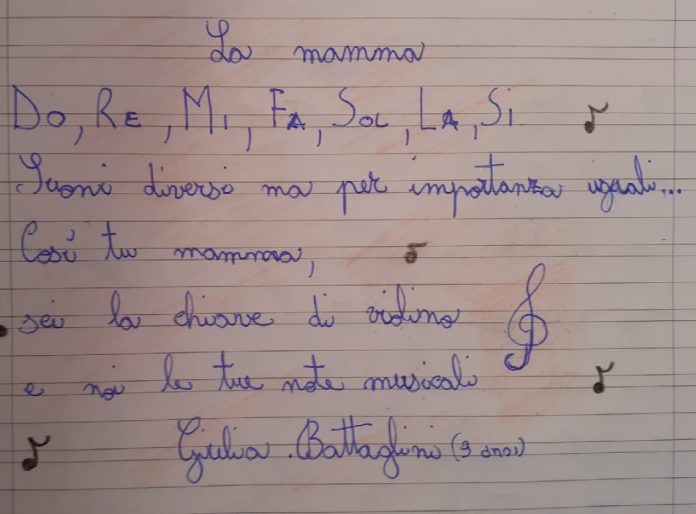 La mamma
Do, Re, Mi, Fa, Sol, La, Si
Suoni diversi ma per importanza uguali...
Così tu mamma,
sei la chiave di violino
e noi le tue note musicali
Giulia Battaglini (9 anni)